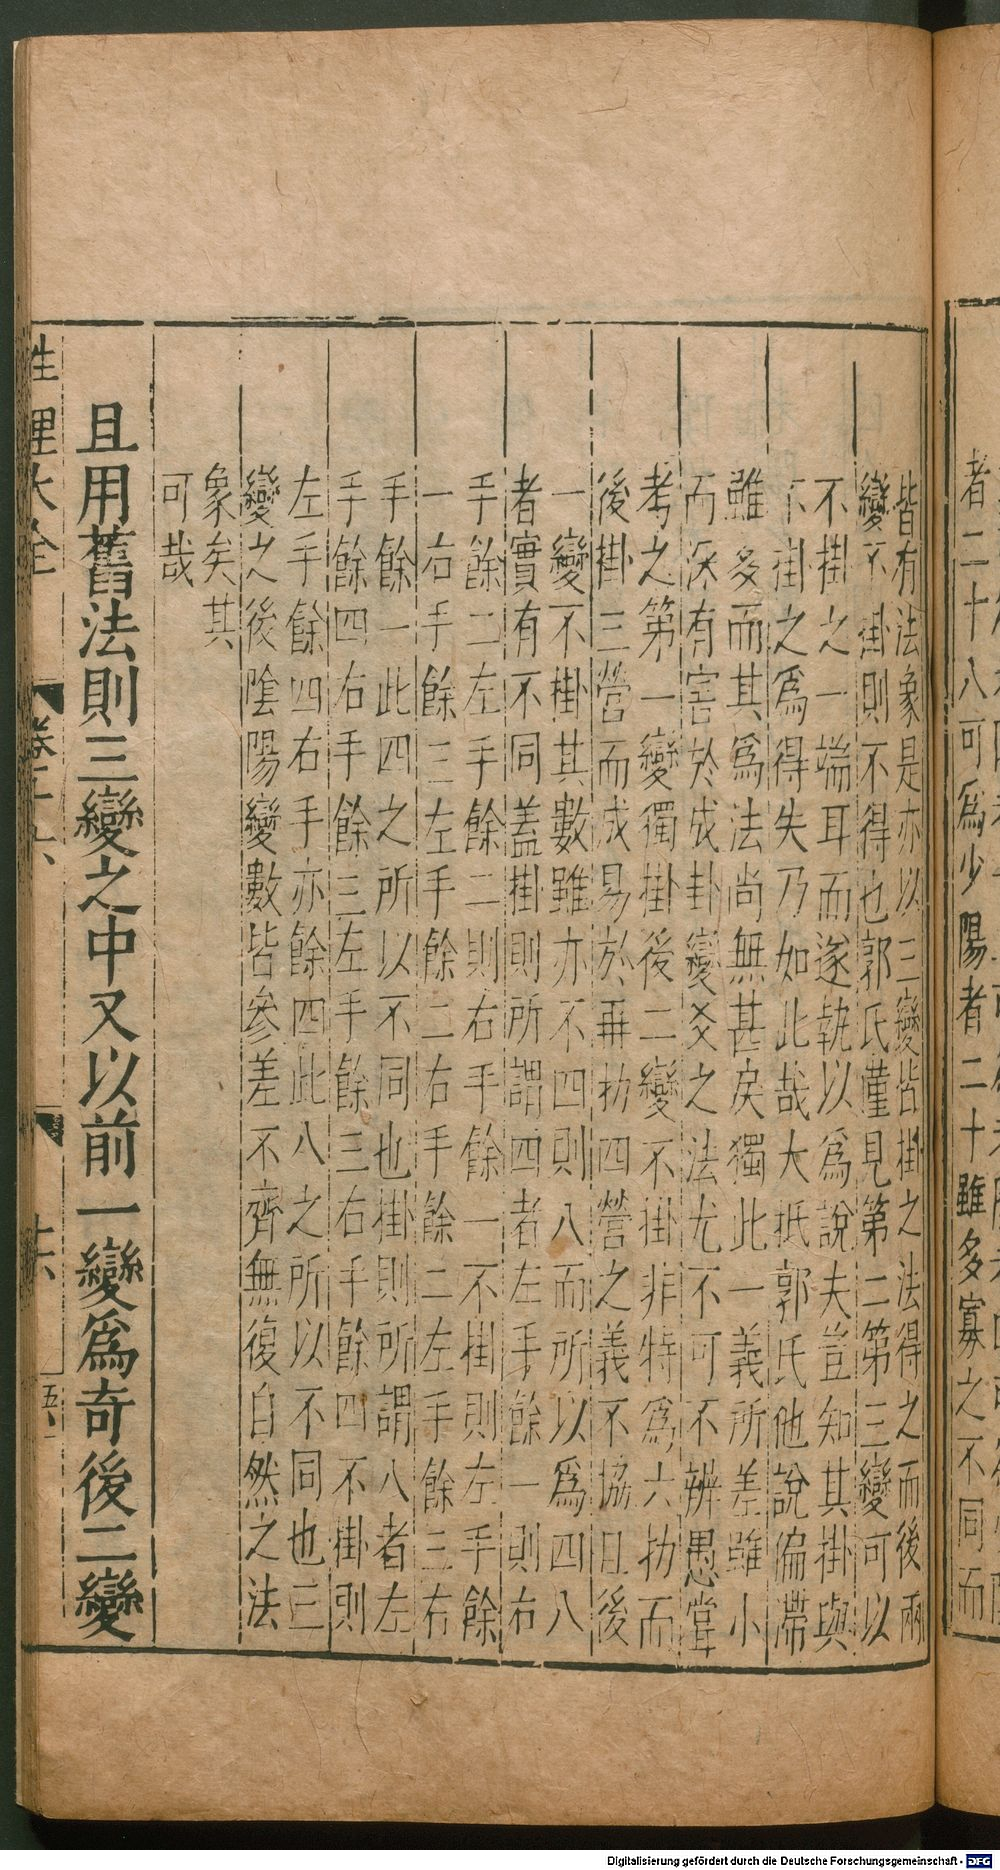 皆有法象是亦以三變皆掛之法得之而後兩
變不掛則不得也郭氏僅見第二第三變可以
不掛之一端耳而遂執以爲說夫豈知其掛與
不掛之爲得失乃如此哉大抵郭氏他說偏滯
雖多而其爲法尚無甚戾獨此一義所差雖小
而深有害於成卦變爻之法尤不可不辨愚嘗
考之第一變獨掛後二變不掛非特爲六扐而
後掛三營而成易於再扐四營之義不協且後
一變不掛其數雖亦不四則八而所以爲四八
者實有不同蓋掛則所謂四者左手餘一則右
手餘二左手餘二則右手餘一不掛則左手餘
一右手餘三左手餘二右手餘二左手餘三右
手餘一此四之所以不同也掛則所謂八者左
手餘四右手餘三左手餘三右手餘四不掛則
左手餘四右手亦餘四此八之所以不同也三
變之後陰陽變數皆參差不齊無復自然之法
象矣其
可哉
且用舊法則三變之中又以前一變爲奇後二變
性理大全
者二十八可爲少陽者二十雖多寡之不同而
Digitalisierung gefördert durch die Deutsche Forschungsgemeinschaft - DFG